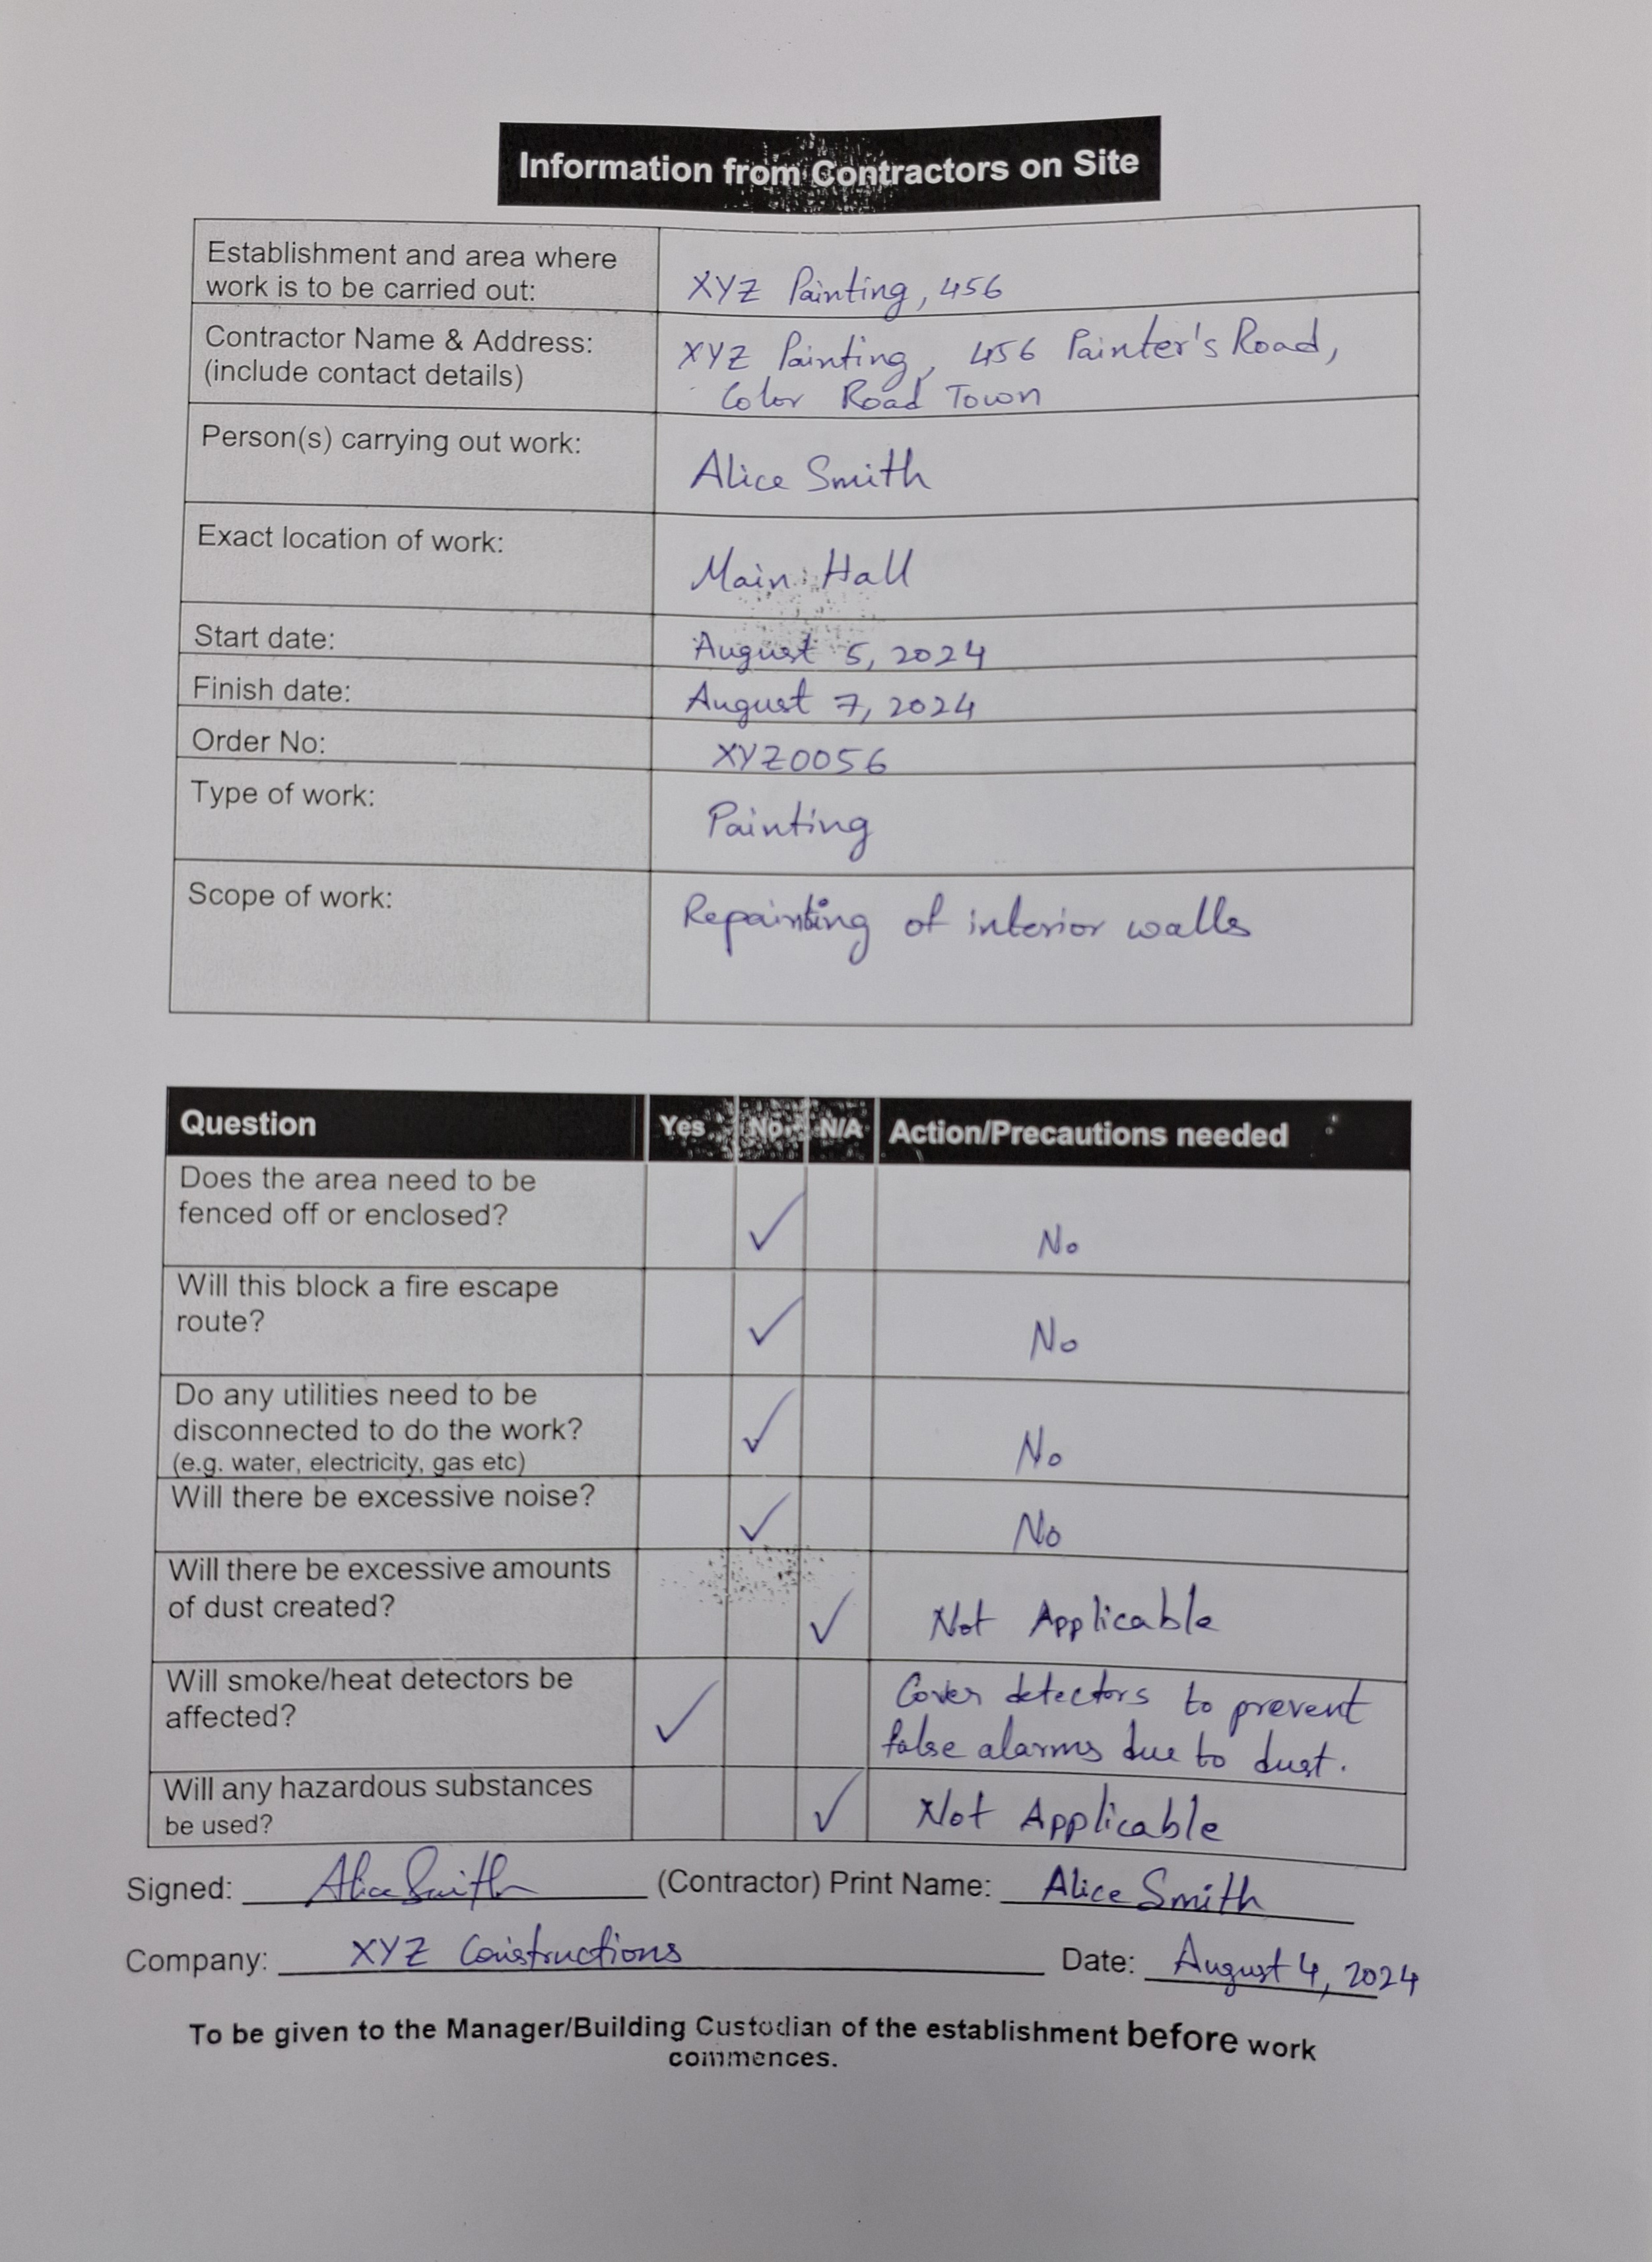 Information from Contractors on Site
Establishment and area where
work is to be carried out:
XYZ Painting, 456
Contractor Name & Address:
(include contact details)
XYZ Painting, 456 Painter's Road,
Color Road Town
Person(s) carrying out work:
Alice Smith
Exact location of work:
Main Hall
Start date:
August 5, 2024
Finish date:
August 7, 2024
Order No:
XYZ0056
Type of work:
Painting
Scope of work:
Repainting of interior walls
Question Yes No N/A Action/Precautions needed
Does the area need to be
fenced off or enclosed?
✓ No
Will this block a fire escape
route?
✓ No
Do any utilities need to be
disconnected to do the work?
(e.g. water, electricity, gas etc)
✓ No
Will there be excessive noise?
✓ No
Will there be excessive amounts
of dust created?
✓ Not Applicable
Will smoke/heat detectors be
affected?
✓ Cover detectors to prevent
false alarms due to dust.
Will any hazardous substances
be used?
✓ Not Applicable
Signed: Alice Smith (Contractor) Print Name: Alice Smith
Company: XYZ Constructions Date: August 4, 2024
To be given to the Manager/Building Custodian of the establishment before work
commences.